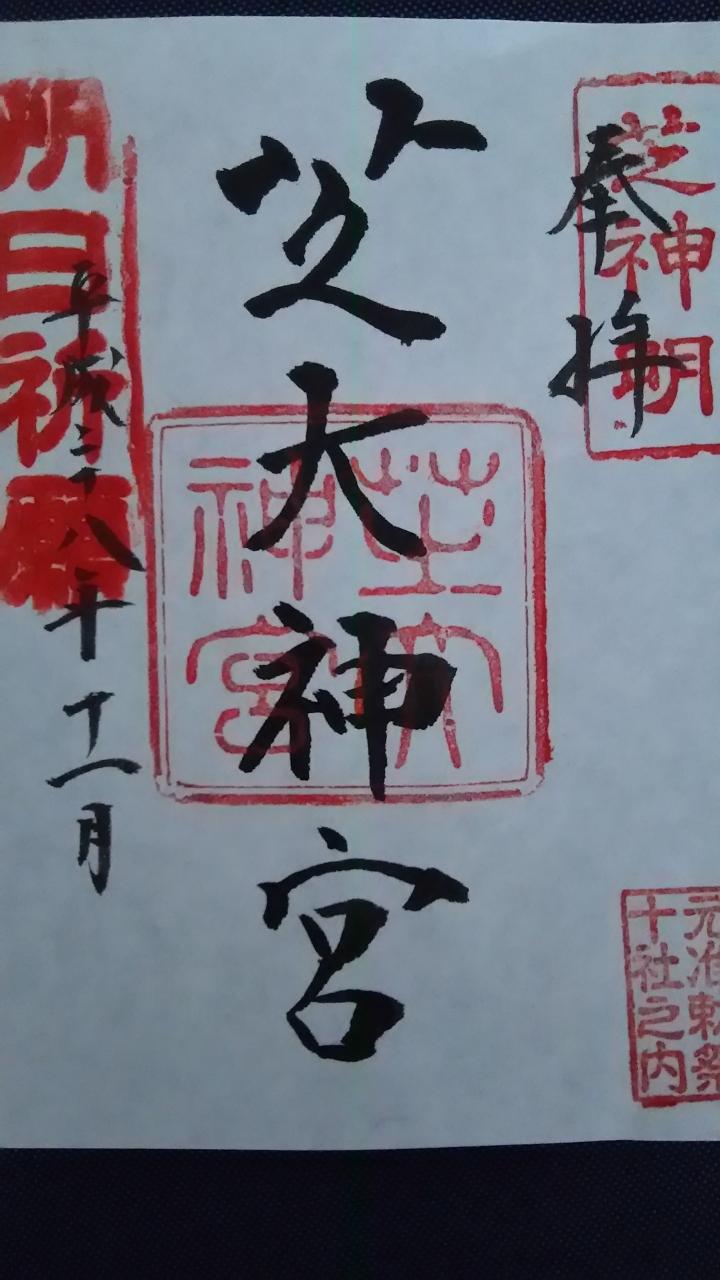 奉拝
芝神明
元治勅祭
十社之内
芝大神宮
芝大
神宮
平成二十八年十一月
日祈